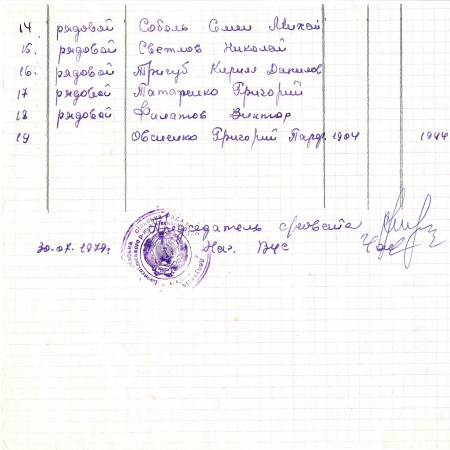 14 рядовой Соболь Семен Михай
15. рядовой Светлов Николай
16. рядовой Тригуб Кирилл Данилов
17 рядовой Татаренко Григорий
18 рядовой Филатов Виктор
19 Овсиенко Григорий Парф. 1904 1944
Председатель с/совета
30.07.1979г Нач. ВУС